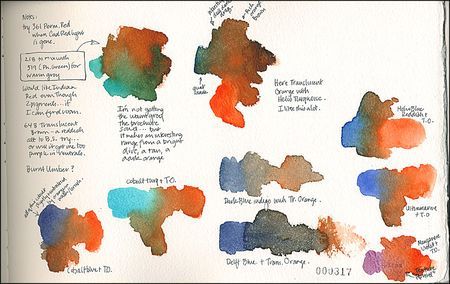 Note:
try 361 Perm. Red
when Cad Red Light
is gone.
519 (Ph. Green) for
warm gray
Would like Indian
Red even though
2 pigments... if
I can find room.
648 Translucent
Brown - a reddish
alt to B.S. try...
or will it give too
purple in neutrals.
Burnt Umber?
I'm not getting
the warm gray
the brochure
said... but
it makes an interesting
range from a bright
olive, a tan, a
dark orange
Here Translucent
Orange with
Helio Turquoise.
I like this a lot.
Helio Blue
Reddish +
T.O.
Cobalt Turq + T.O.
Dark Blue Indigo with Tr. Orange.
Ultramarine
+ T.O.
Cobalt Blue + T.O.
Delft Blue + Trans. Orange.
000317
Manganese
Violet +
T.O.